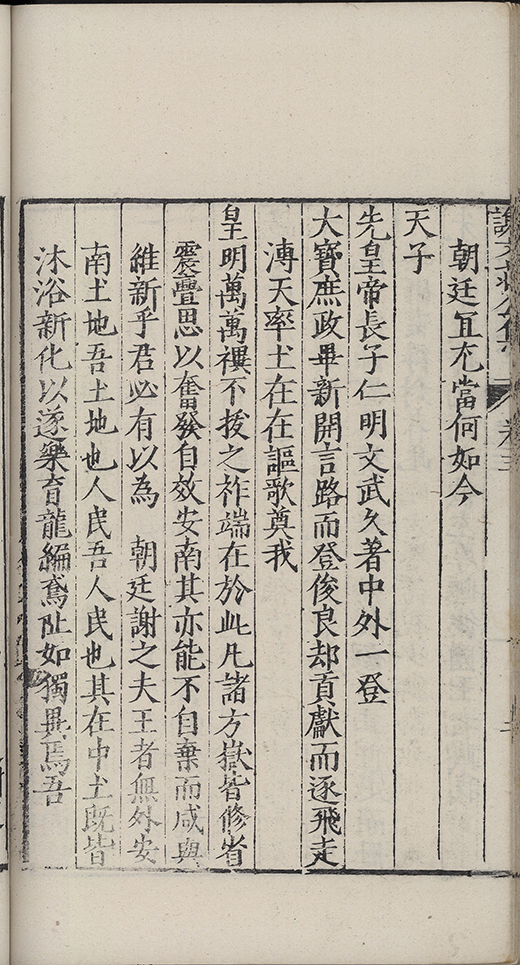 卷三
朝廷宜尤當何如今
天子
先皇帝長子仁明文武久著中外一登
大寶庶政畢新開言路而登俊良却貢獻而逐飛走
溥天率土在在謳歌奠我
皇明萬萬禩不拔之祚端在於此凡諸方嶽皆修省
震疊思以奮發自效安南其亦能不自棄而咸與
維新乎君必有以為 朝廷謝之夫王者無外安
南土地吾土地也人民吾人民也其在中土既皆
沐浴新化以遂樂育龍編鳶阯如獨異焉吾